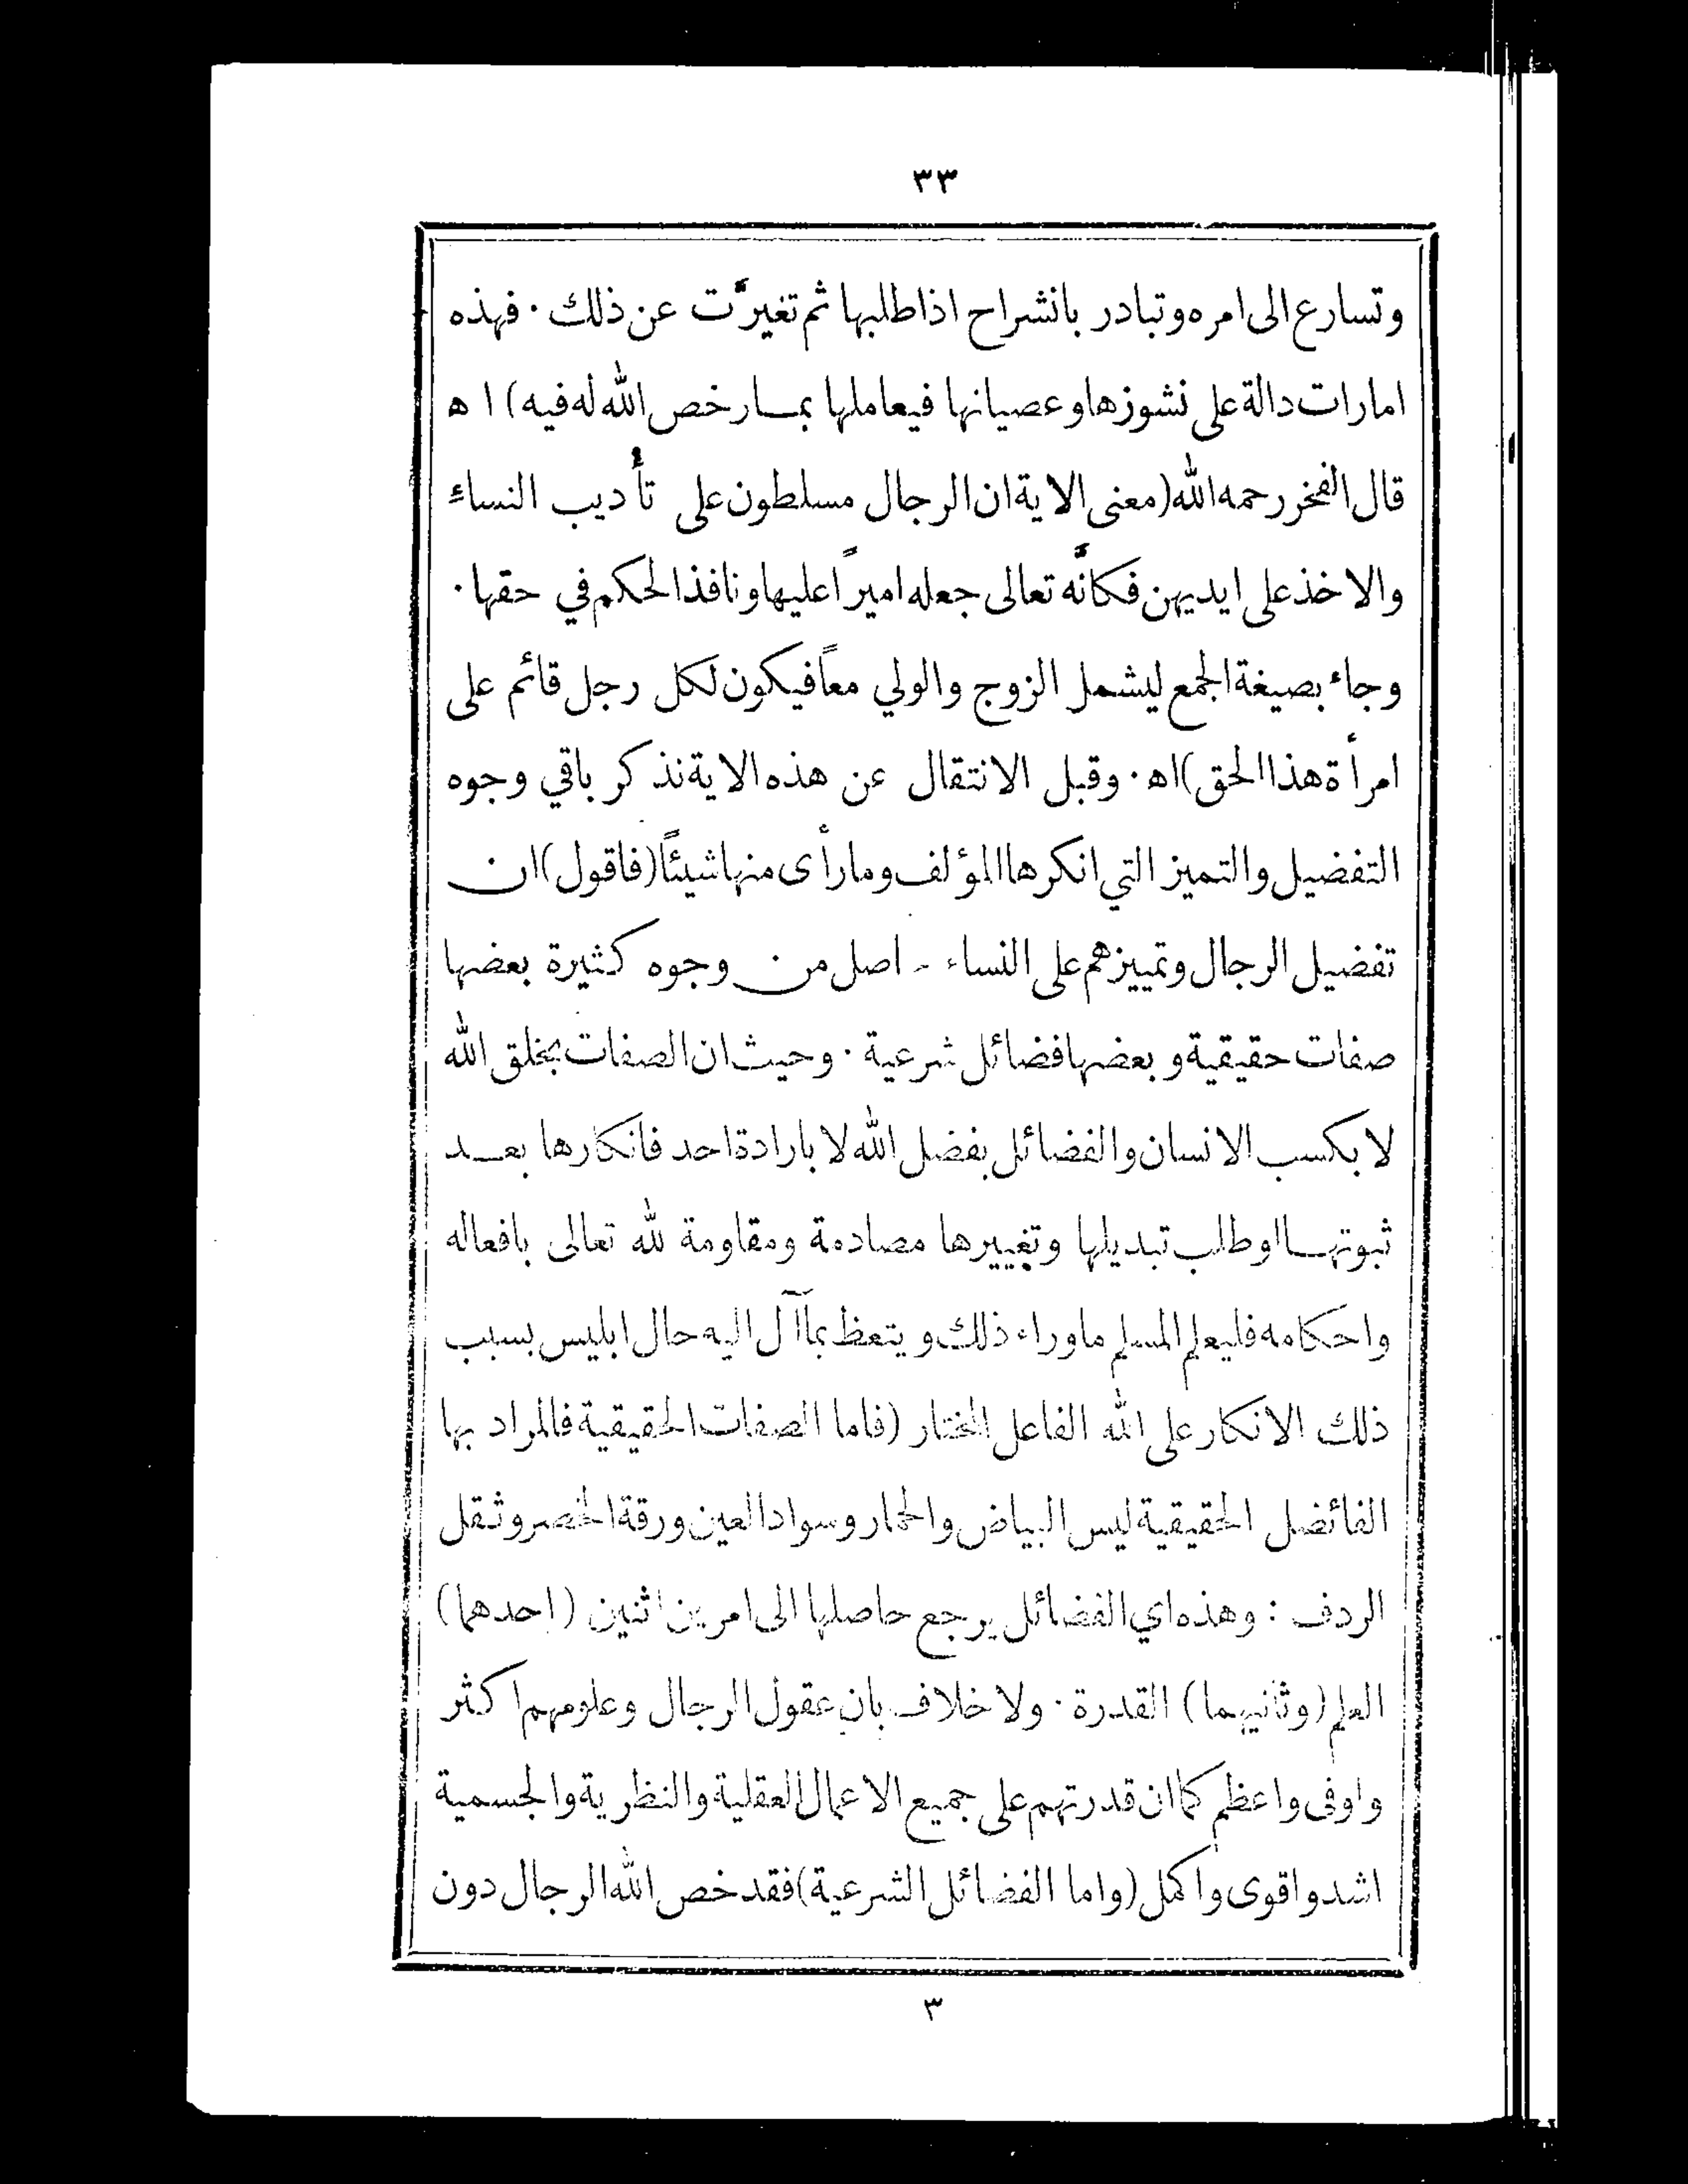 ٣٣
وتسارع الى امره وتبادر بانشراح اذا طلبها ثم تغيرَّت عن ذلك · فهذه
امارات دالة على نشوزها وعصيانها فيعاملها بمـا رخص الله له فيه) ا ه
قال الفخر رحمه الله (معنى الاية ان الرجال مسلطون على تأديب النساءِ
والاخذ على ايديهن فكانَّه تعالى جعله اميرًا عليها ونافذ الحكم في حقها ·
وجاء بصيغة الجمع ليشمل الزوج والولي معاً فيكون لكل رجل قائم على
امرأة هذا الحق) اه · وقبل الانتقال عن هذه الاية نذكر باقي وجوه
التفضيل والتميز التي انكرها المؤلف وما رأى منها شيئًا (فاقول) ان
تفضيل الرجال وتمييزهم على النساء اصل من وجوه كثيرة بعضها
صفات حقيقية وبعضها فضائل شرعية · وحيث ان الصفات بخلق الله
لا بكسب الانسان والفضائل بفضل الله لا بارادة احد فانكارها بعـد
ثبوتهـا او طلب تبديلها وتغييرها مصادمة ومقاومة لله تعالى بافعاله
واحكامه فليعلم المسلم ما وراء ذلك ويتعظ بما آل اليه حال ابليس بسبب
ذلك الانكار على الله الفاعل المختار (فاما الصفات الحقيقية فالمراد بها
الفائضل الحقيقية ليس البياض والحمار وسواد العين ورقة الخصر وثقل
الردف : وهذه اي الفضائل يرجع حاصلها الى امرين اثنين (احدهما)
العلم (وثانيهما) القدرة · ولا خلاف بان عقول الرجال وعلومهم اكثر
واوفى واعظم كما ان قدرتهم على جميع الاعمال العقلية والنظرية والجسمية
اشد واقوى واكمل (واما الفضائل الشرعية) فقد خص الله الرجال دون
٣